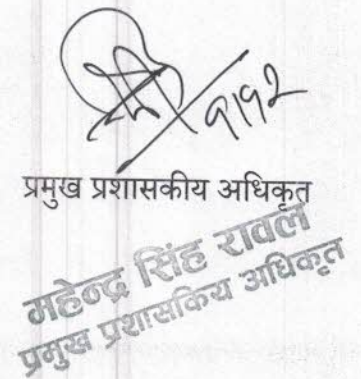 ९१९२
प्रमुख प्रशासकीय अधिकृत
महेन्द्र सिंह रावल
प्रमुख प्रशासकिय अधिकृत